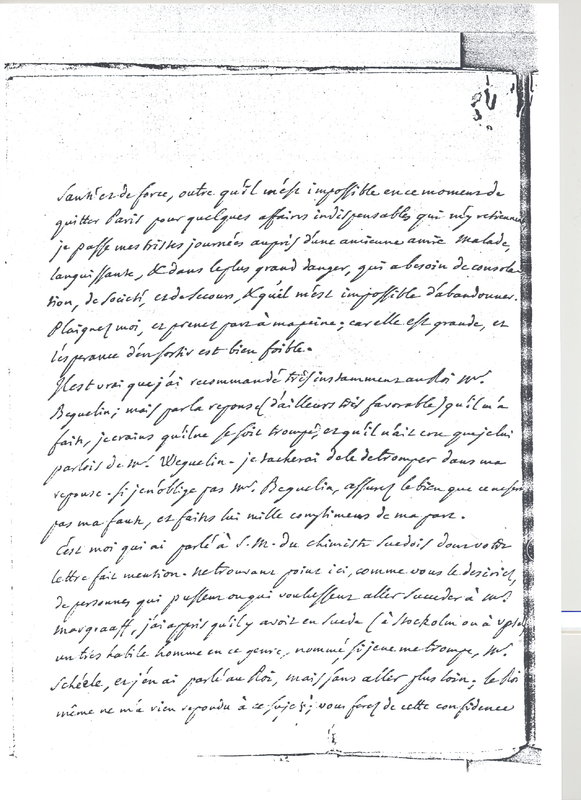 santé et de force, outre qu'il m'est impossible en ce moment de
quitter Paris pour quelques affaires indispensables qui m'y retiennent
je passe mes tristes journées auprès d'une ancienne amie malade,
languissante, & dans le plus grand danger, qui a besoin de consola-
tion, de société, et de secours, & qu'il m'est impossible d'abandonner.
Plaignez moi, et prenez part à ma peine; car elle est grande, et
l'espérance d'en sortir est bien foible.
Il est vrai que j'ai recommandé très instamment au Roi Mr.
Beguelin; mais par la reponse (d'ailleurs très favorable) qu'il m'a
faite, je crains qu'il ne se soit trompé, et qu'il n'ait cru que je lui
parlois de Mr. Weguelin. je tacherai de le detromper dans ma
reponse. Si je n'oblige pas Mr. Beguelin, assurez le bien que ce ne sera
pas ma faute, et faites lui mille complimens de ma part.
C'est moi qui ai parlé à S. M. du chimiste suedois dont votre
lettre fait mention. Ne trouvant point ici, comme vous le desiriez,
de personnes qui pussent ou qui voulussent aller succeder à Mr.
Margraaff, j'ai appris qu'il y avoit en Suede (à Stockolm ou à Upsal)
un très habile homme en ce genre, nommé, si je ne me trompe, Mr.
Schéele, et j'en ai parlé au Roi, mais sans aller plus loin; le Roi
même ne m'a rien repondu à ce sujet; vous ferez de cette confidence